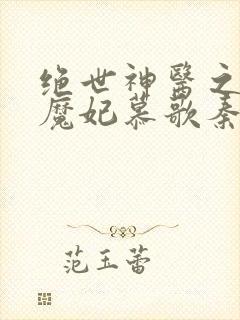 绝世神醫之
魔妃慕歌秦
范玉蕾